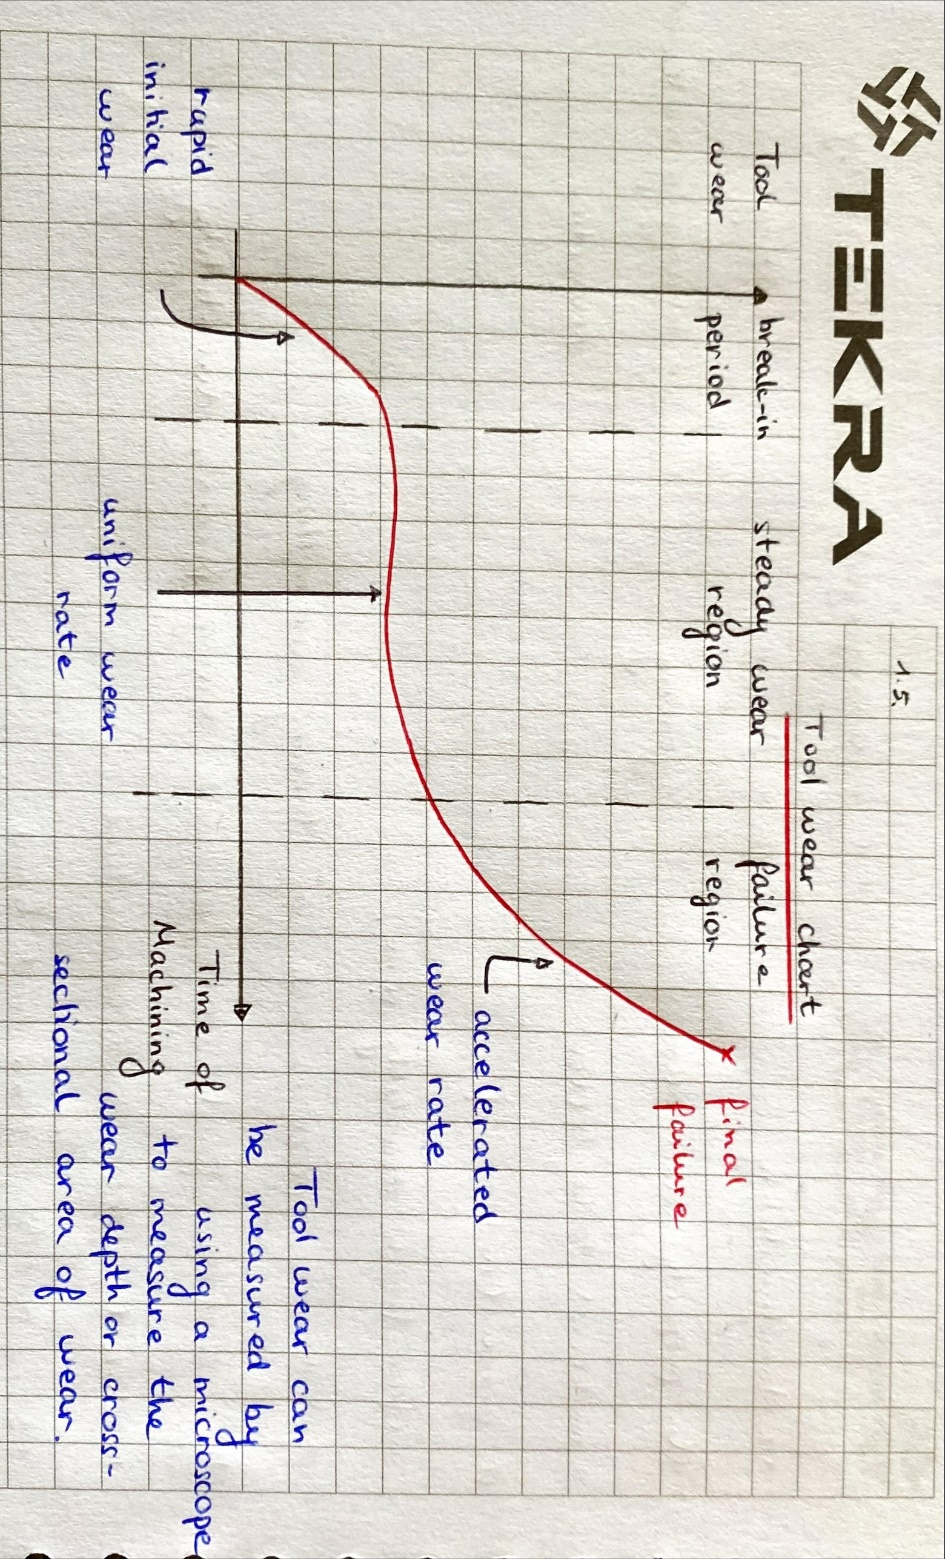 TEKRA
1.5.
Tool wear chart
Tool
wear
break-in
period
steady wear
region
failure
region
final
failure
accelerated
wear rate
rapid
initial
wear
uniform wear
rate
Time of
Machining
Tool wear can
be measured by
using a microscope
to measure the
wear depth or cross-
sectional area of wear.